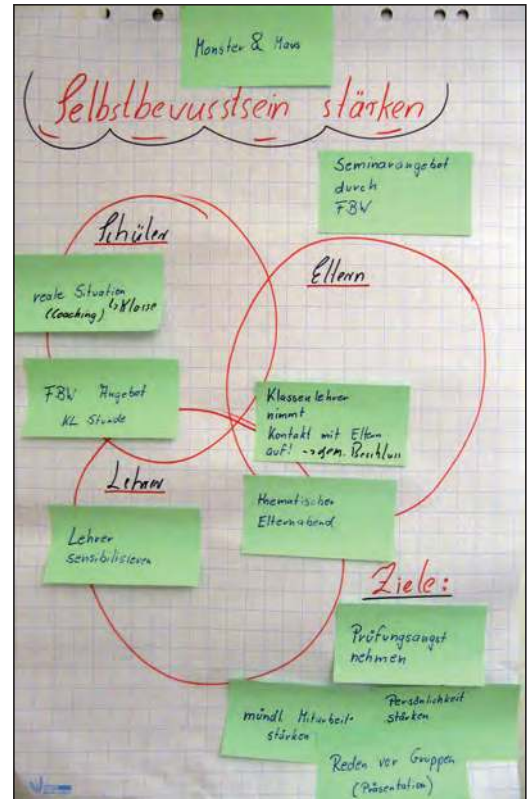 Monster & Maus
Selbstbewusstsein stärken
Seminarangebot
durch
FBW
Schüler
Eltern
reale Situation
(Coaching) ↳ Klasse
FBW Angebot
KL Stunde
Klassenlehrer
nimmt
Kontakt mit Eltern
auf! → gem. Beschluss
Lehrer
thematischer
Elternabend
Lehrer
sensibilisieren
Ziele:
Prüfungsangst
nehmen
mündl. Mitarbeit
stärken
Persönlichkeit
stärken
Reden vor Gruppen
(Präsentation)